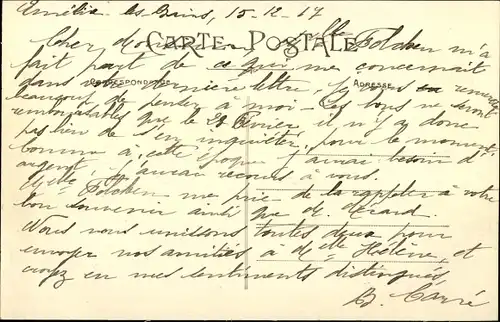 Amélie les Bains, 15-12-17
Cher Monsieur, Mlle Folcher m'a
CARTE POSTALE
fait part de ce qui me concernait
CORRESPONDANCE
ADRESSE
dans dernière lettre, je vous en remercie
beaucoup de penser à moi. Ces bons ne seront
remboursables que le 28 Février, il n'y a donc
pas lieu de s'en inquiéter, pour le moment
comme à cette époque j'aurai besoin d'
argent, j'aurai recours à vous.
Mlle Folcher me prie de la rappeler à votre
bon souvenir ainsi que M. Érard.
Nous nous unissons toutes deux pour
envoyer nos amitiés à Melle Hélène, et
croyez en mes sentiments distingués,
B. Carré